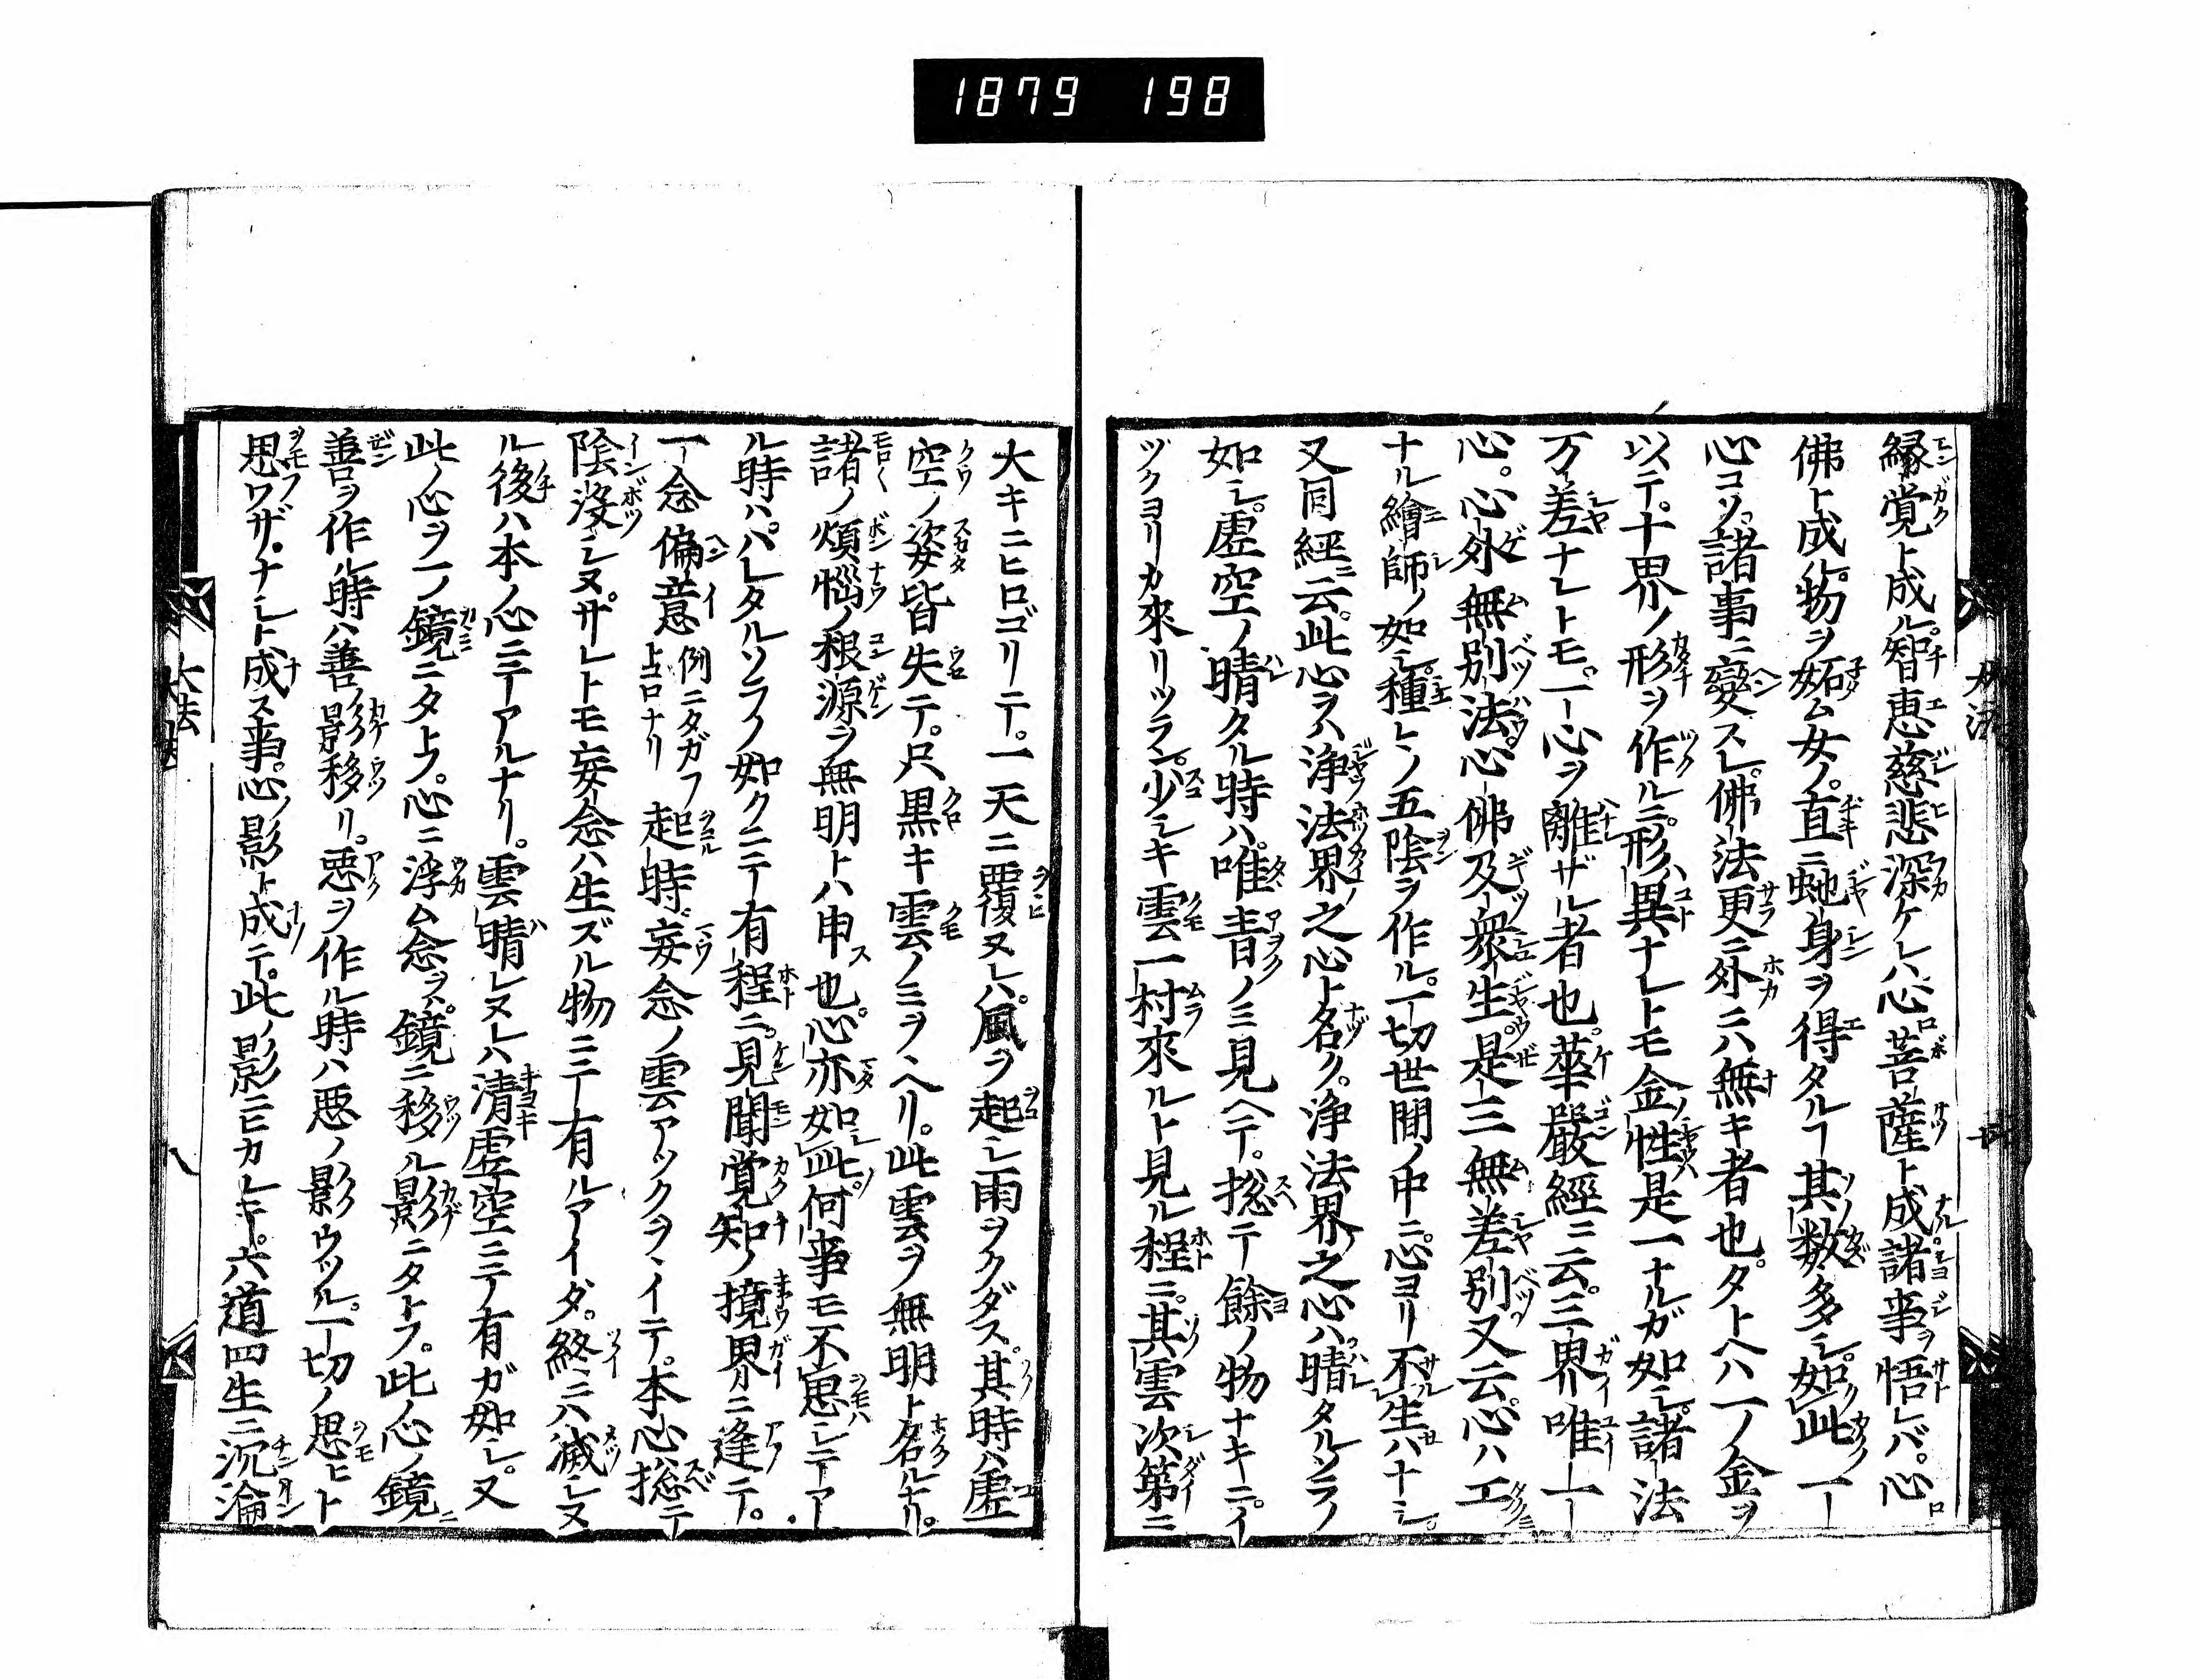 1879 198
縁覚ト成ル。智恵慈悲深ケレハ心菩薩ト成諸事ヲ悟レバ。心
佛ト成ル。物ヲ妬ム女ノ。直ニ虵身ヲ得タルヿ其数多シ。如此一
心コソ。諸事ニ變スレ。佛法更ニ外ニハ無キ者也。タトヘハ一ノ金ヲ
以テ。十界ノ形ヲ作ルニ。形ハ異ナレトモ金ノ性是一ナルガ如シ。諸法
万差ナレトモ。一心ヲ離ザル者也。華嚴經ニ云。三界唯一
心。心外無別法。心佛及衆生。是三無差別。又云。心ハ工
ナル繪師ノ如シ。種〻ノ五陰ヲ作ル。一切世間ノ中ニ。心ヨリ不生ハナシ。
又同經ニ云。此心ヲハ浄法界之心ト名ク。浄法界之心ハ。晴タルソラノ
如シ。虚空ノ晴タル時ハ。唯青ノミ見ヘテ。捴テ餘ノ物ナキニ。イ
ヅクヨリカ來リツラン。少シキ雲一村來ルト見ル程ニ。其雲次第ニ
大キニヒロゴリテ。一天ニ覆ヌレハ。風ヲ起シ雨ヲクダス。其時ハ虚
空ノ姿皆失テ。只黒キ雲ノミヲヘリ。此雲ヲ無明ト名ルナリ。
諸ノ煩惱ノ根源ヲ無明トハ申也。心亦如此。何事モ不思シテア
ル時ハ。ハレタルソラノ如クニテ有程ニ。見聞覚知ノ境界ニ逢テ。
一念偏意例ニタガフトコロナリ起時。妄念ノ雲アツクヲヽイテ。本心捴テ
陰没シヌ。サレトモ妄念ハ生ズル物ニテ有ルアイダ。終ニハ滅シヌ
ル後ハ本ノ心ニテアルナリ。雲晴レヌレハ清虚空ニテ有ガ如シ。又
此ノ心ヲ一ノ鏡ニタトフ。心ニ浮ム念ヲハ。鏡ニ移ル影ニタトフ。此心ノ鏡
善ヲ作ル時ハ善ノ影移リ。悪ヲ作ル時ハ悪ノ影ウツル。一切ノ思ヒト
思ワザ。ナシト成ス事。心ノ影ト成テ。此ノ影ニヒカレテ。六道四生ニ沉淪